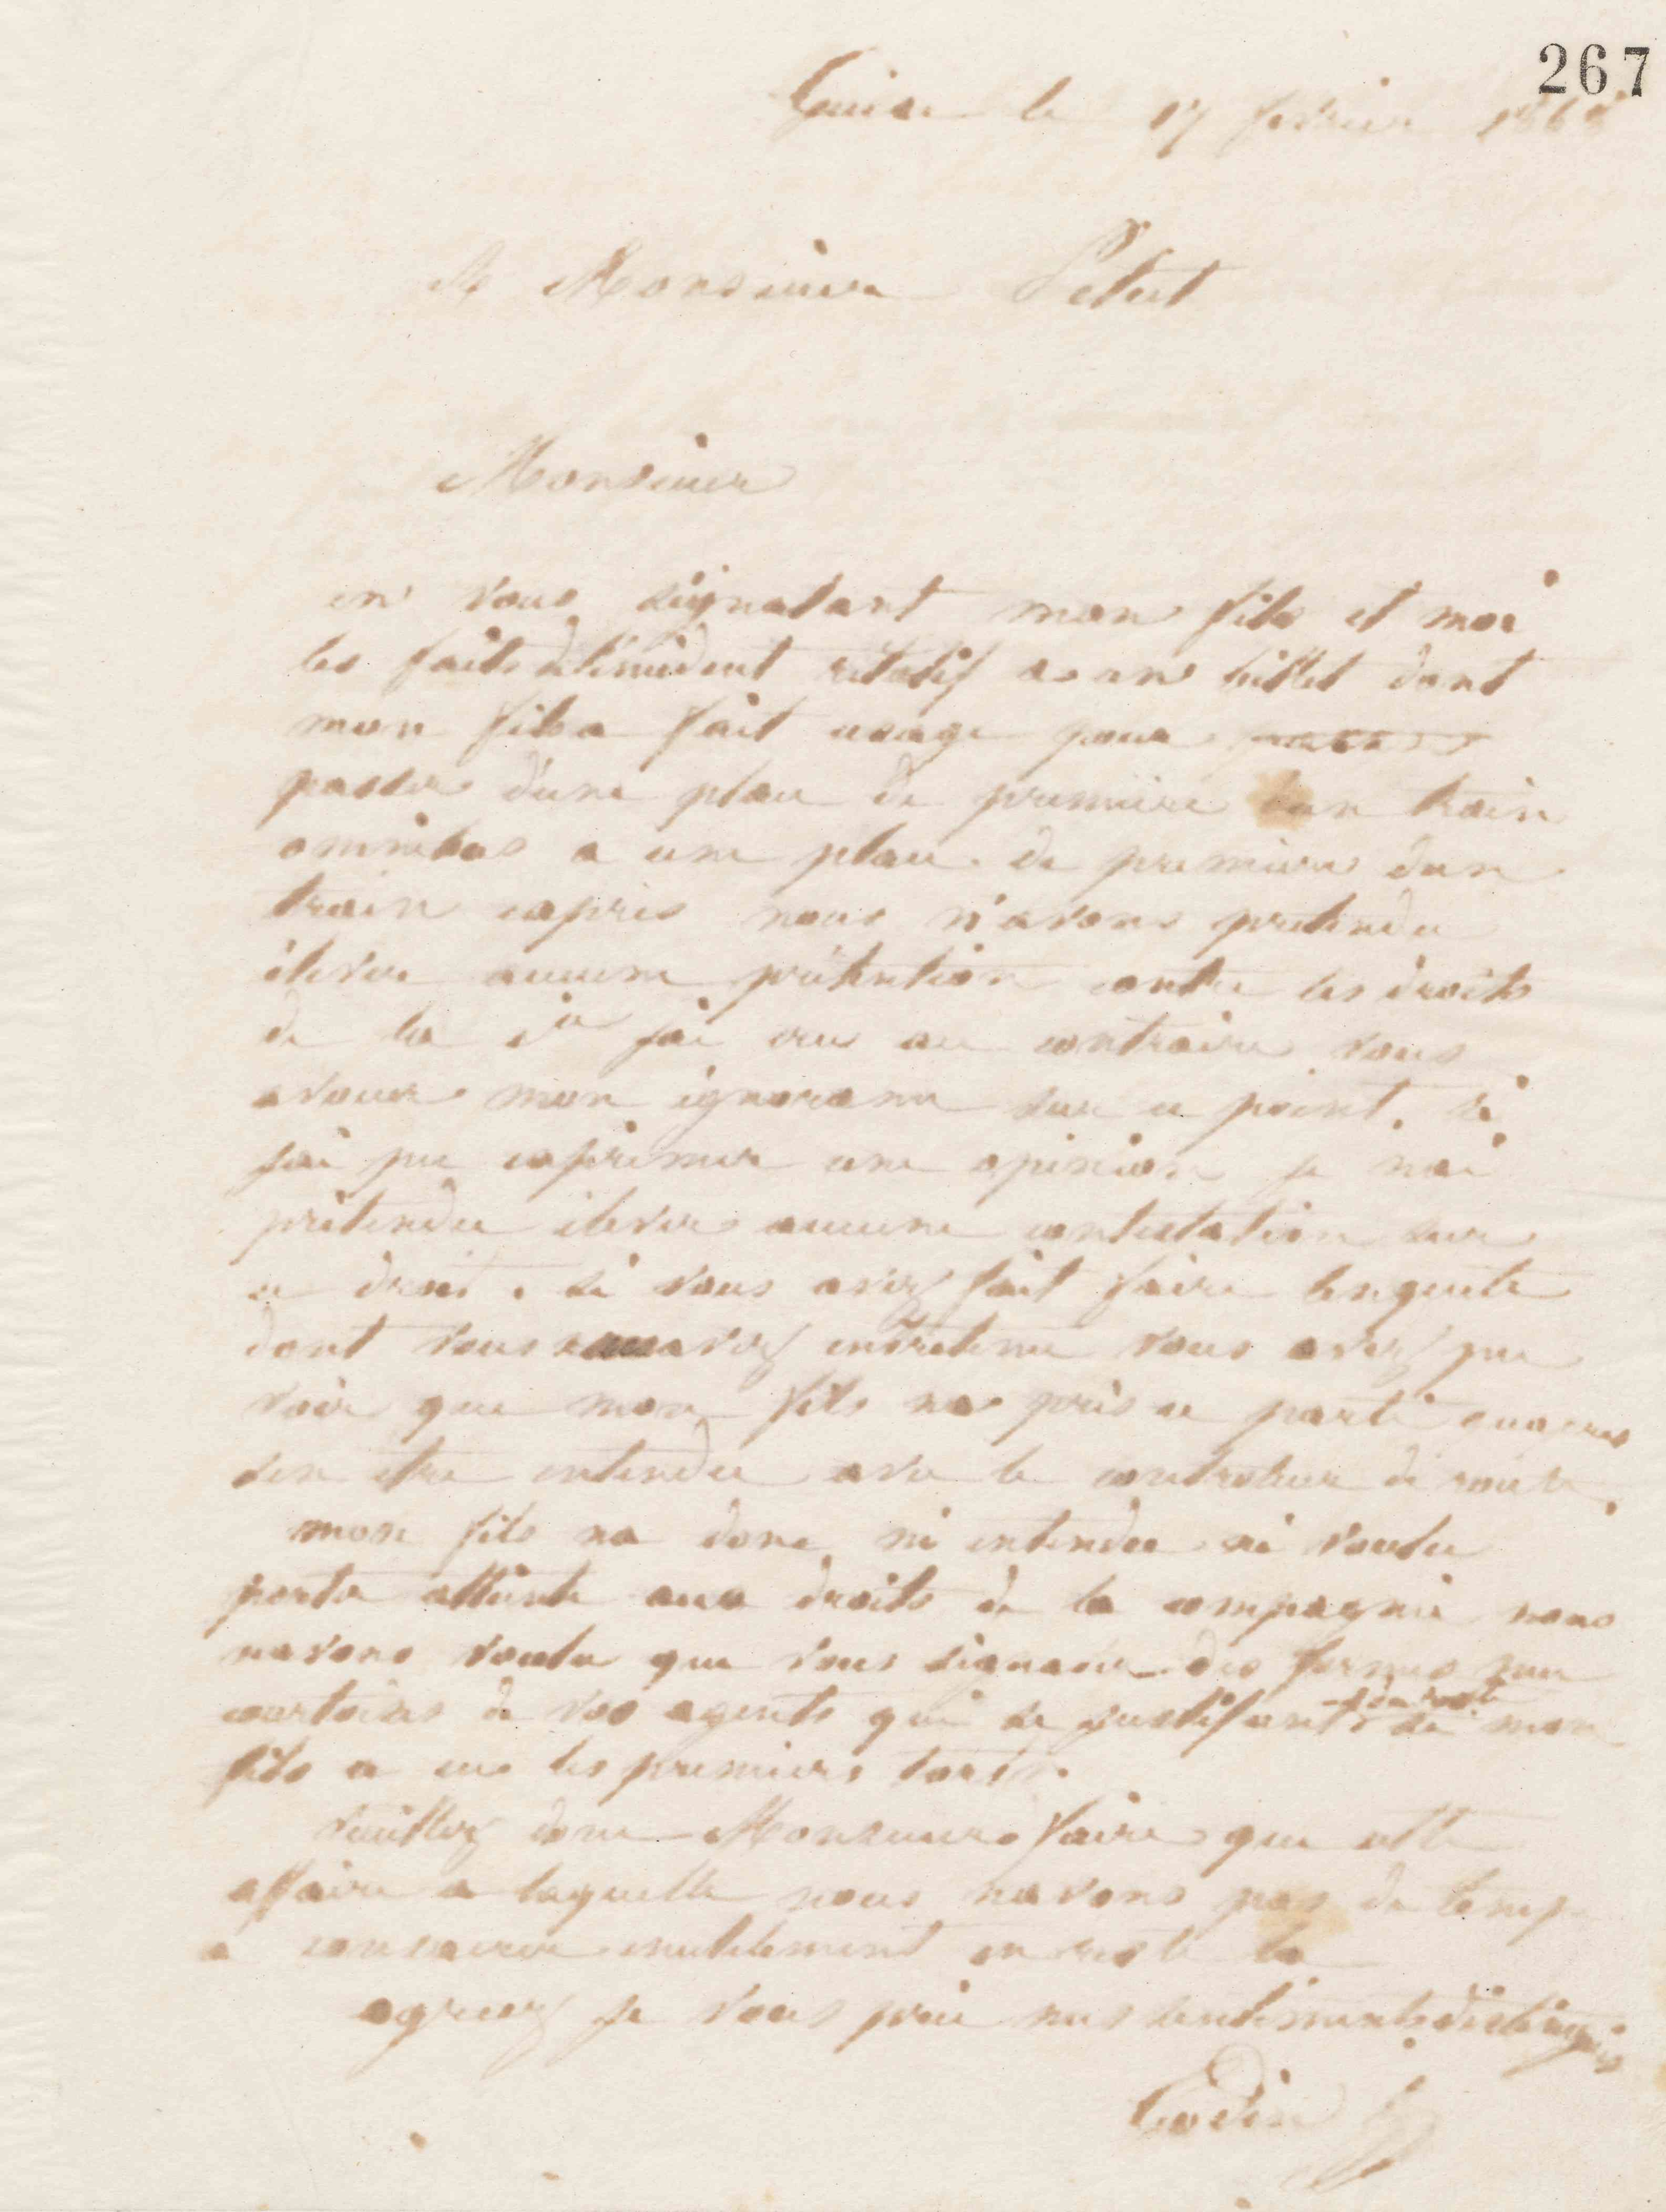 267
Guise le 17 fevrier 186
A Monsieur Petit
Monsieur
en vous signalant mon fils et moi
les faits de l'incident relatif a un billet dont
mon fils a fait usage pour
passer d'une place de premiere d'un train
omnibus a une place de premiere d'un
train express nous n'avons pretendu
élever aucune prétention contre les droits
de la Cie j'ai cru au contraire vous
avouer mon ignorance sur ce point. si
j'ai pu exprimer une opinion je nai
prétendu élever aucune contestation sur
ce droit. si vous avez fait faire lenquete
dont vous mavez entretenu vous avez pu
voir que mon fils na pris ce parti quapres
sen etre entendu avec le controleur de route.
mon fils na donc ni entendu ni voulu
porter atteinte aux droits de la compagnie nous
navons voulu que vous signaler des formes peu
courtoises de vos agents qui se justifient si mon
fils a eu les premiers torts.
Veuillez donc Monsieur faire que cette
affaire a laquelle nous navons pas de temp
a consacrer inutilement en reste la
agreez je vous prie mes sentiments distingués
Godin